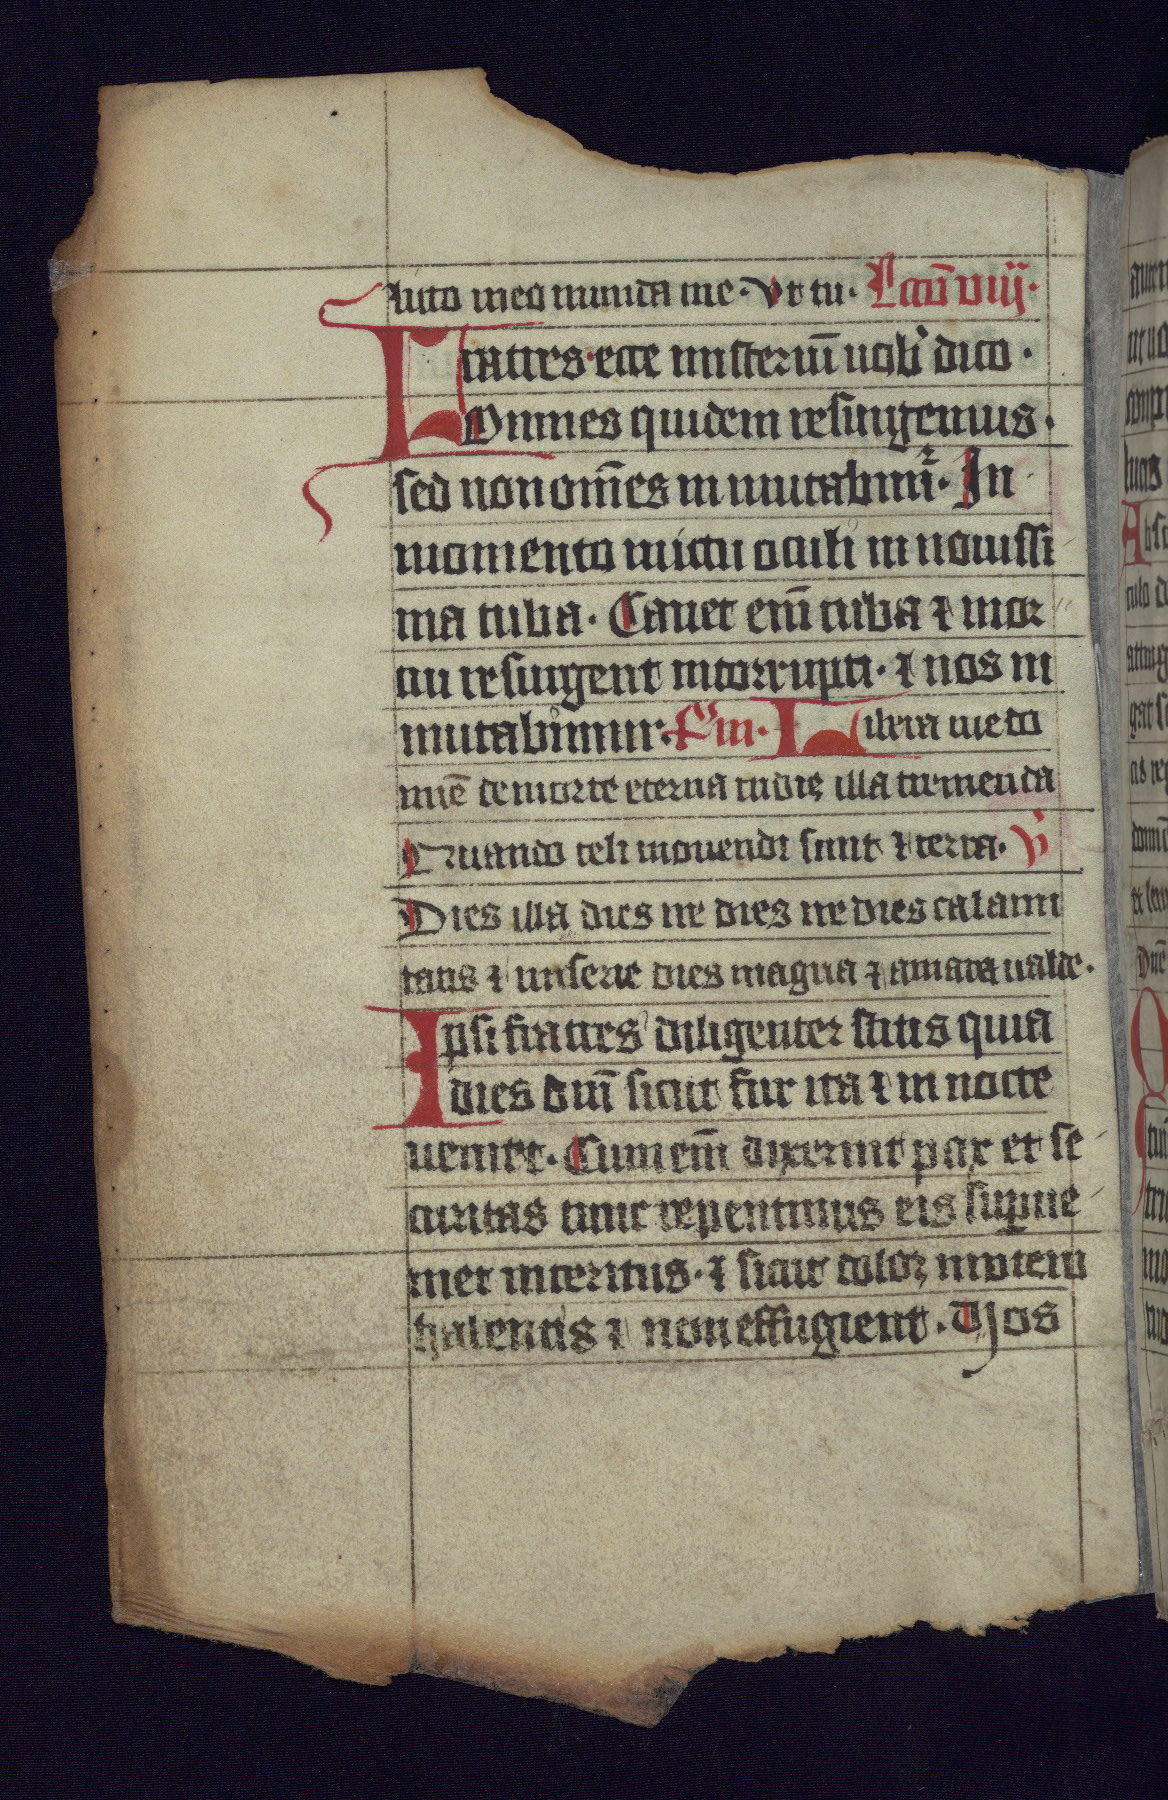 luto meo munda me. Ut tu. Lcō viij.
Fratres ecce misteriū uob' dico.
Omnes quidem resurgemus.
sed non om̄es inmutabim'. In
momento nictu oculi in nouissi
ma tuba. Canet em̄ tuba ⁊ mor
tui resurgent incorrupti. ⁊ nos in
mutabimur. Libera me do
mīe de morte eterna in die illa tremenda
Quando celi mouendi sunt ⁊ terra. V
Dies illa dies ire dies ire dies calami
tatis ⁊ miserie dies magna ⁊ amara ualde.
Ipsi fratres diligenter scitis quia
dies dn̄i sicut fur ita ⁊ in nocte
ueniet. Cum em̄ dixerint pax et se
curitas tunc repentinus eis supue
niet interitus. ⁊ sicut dolor in utero
habentis ⁊ non effugient. Vos